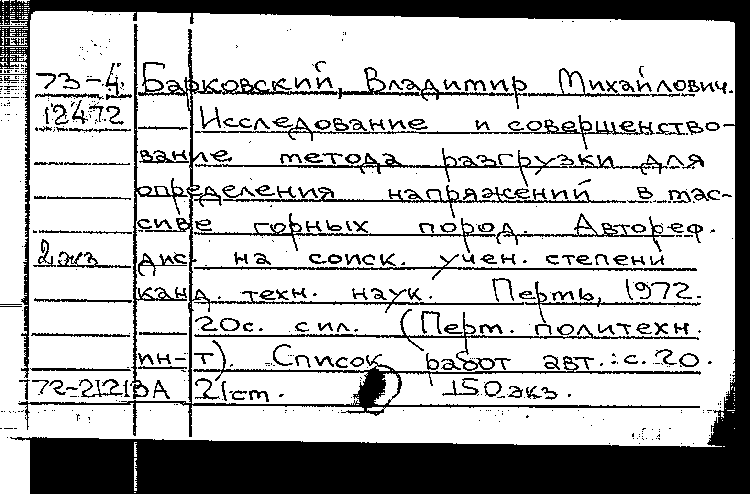 73-4 Барковский, Владимир Михайлович.
12472 Исследование и совершенство-
вание метода разгрузки для
определения напряжений в мас-
сиве горных пород. Автореф.
2 экз дис. на соиск. учен. степени
канд. техн. наук. Пермь, 1972.
20с. с ил. (Перм. политехн.
ин-т). Список работ авт.: с. 20.
72-21213А 21ст. 150экз.